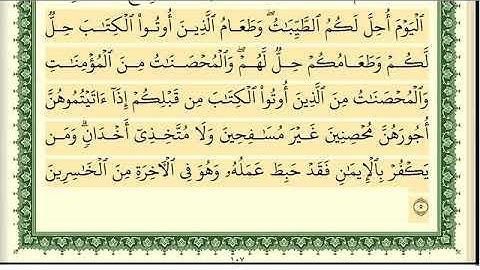 ٱلۡيَوۡمَ أُحِلَّ لَكُمُ ٱلطَّيِّبَٰتُۖ وَطَعَامُ ٱلَّذِينَ أُوتُواْ ٱلۡكِتَٰبَ حِلّٞ
لَّكُمۡ وَطَعَامُكُمۡ حِلّٞ لَّهُمۡۖ وَٱلۡمُحۡصَنَٰتُ مِنَ ٱلۡمُؤۡمِنَٰتِ
وَٱلۡمُحۡصَنَٰتُ مِنَ ٱلَّذِينَ أُوتُواْ ٱلۡكِتَٰبَ مِن قَبۡلِكُمۡ إِذَآ ءَاتَيۡتُمُوهُنَّ
أُجُورَهُنَّ مُحۡصِنِينَ غَيۡرَ مُسَٰفِحِينَ وَلَا مُتَّخِذِيٓ أَخۡدَانٖۗ وَمَن
يَكۡفُرۡ بِٱلۡإِيمَٰنِ فَقَدۡ حَبِطَ عَمَلُهُۥ وَهُوَ فِي ٱلۡأٓخِرَةِ مِنَ ٱلۡخَٰسِرِينَ
٥
١٠٧